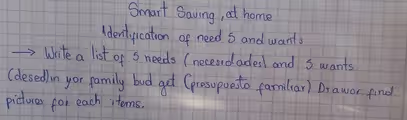 Smart Saving, at home
Identification of need s and wants
→ Write a list of 5 needs (necesidades) and 5 wants
(deseo) in yor family bud get (presupuesto familiar) Drawor find
pictures for each items.